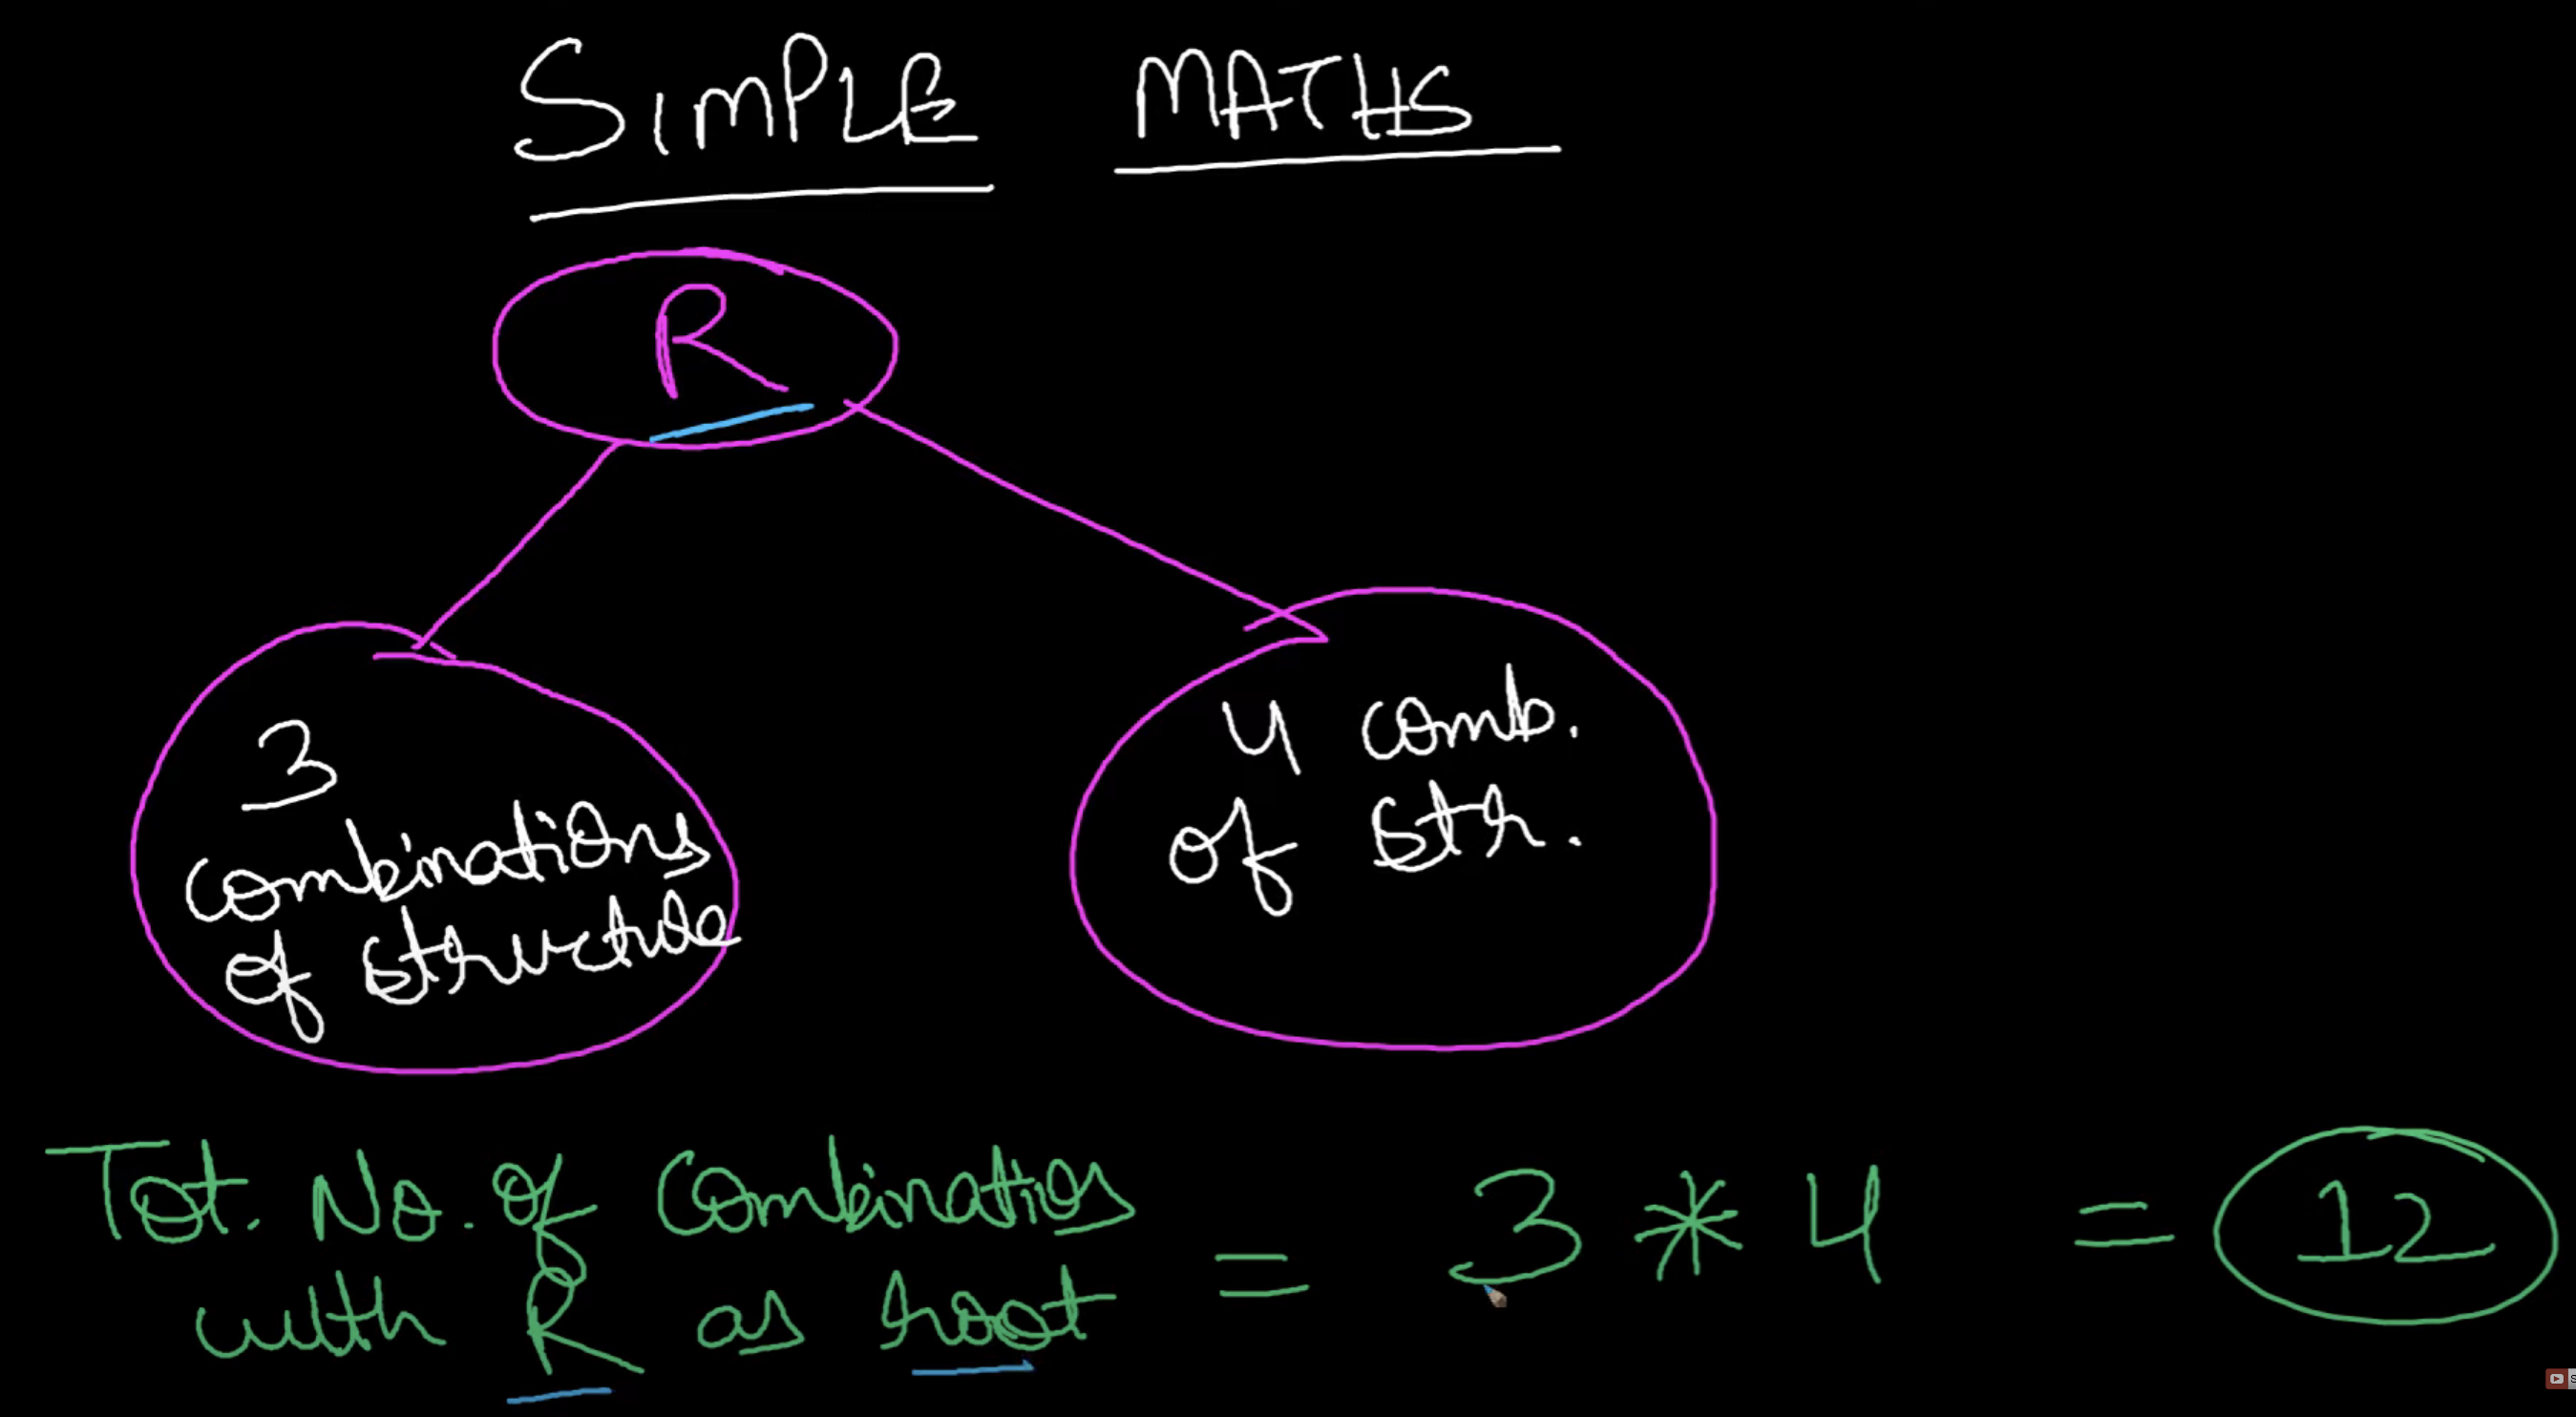 SIMPLE MATHS
R
3
combinations
of structure
4 comb.
of str.
Tot. No. of Combinatios
with R as root
= 3 * 4 = 12
S